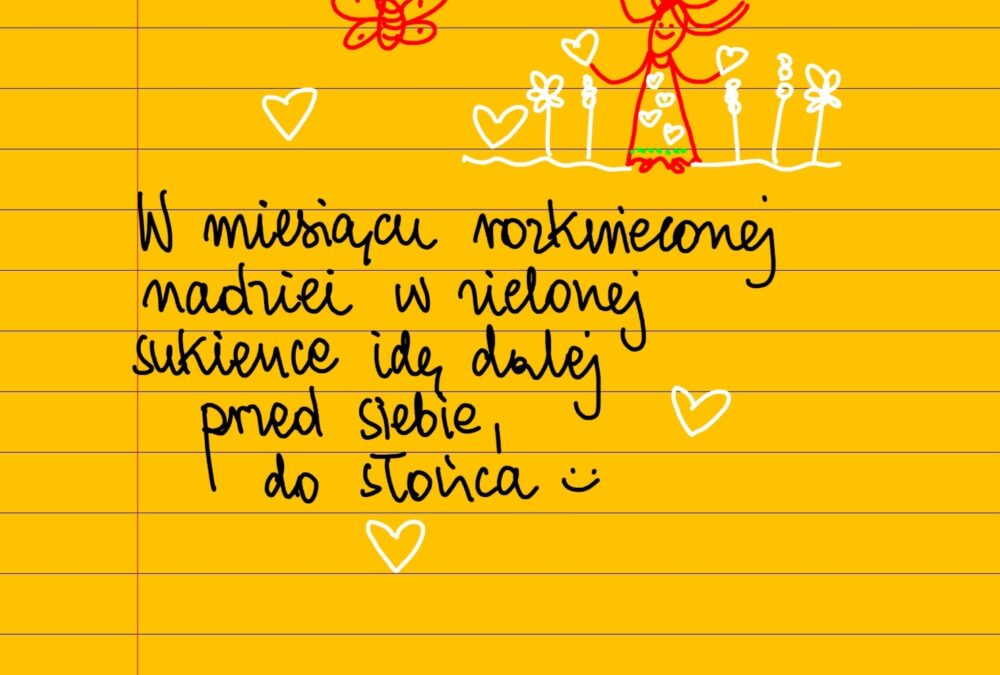 W miesiącu rozkwieconej
nadziei w zielonej
sukience idę dalej
przed siebie,
do słońca :)